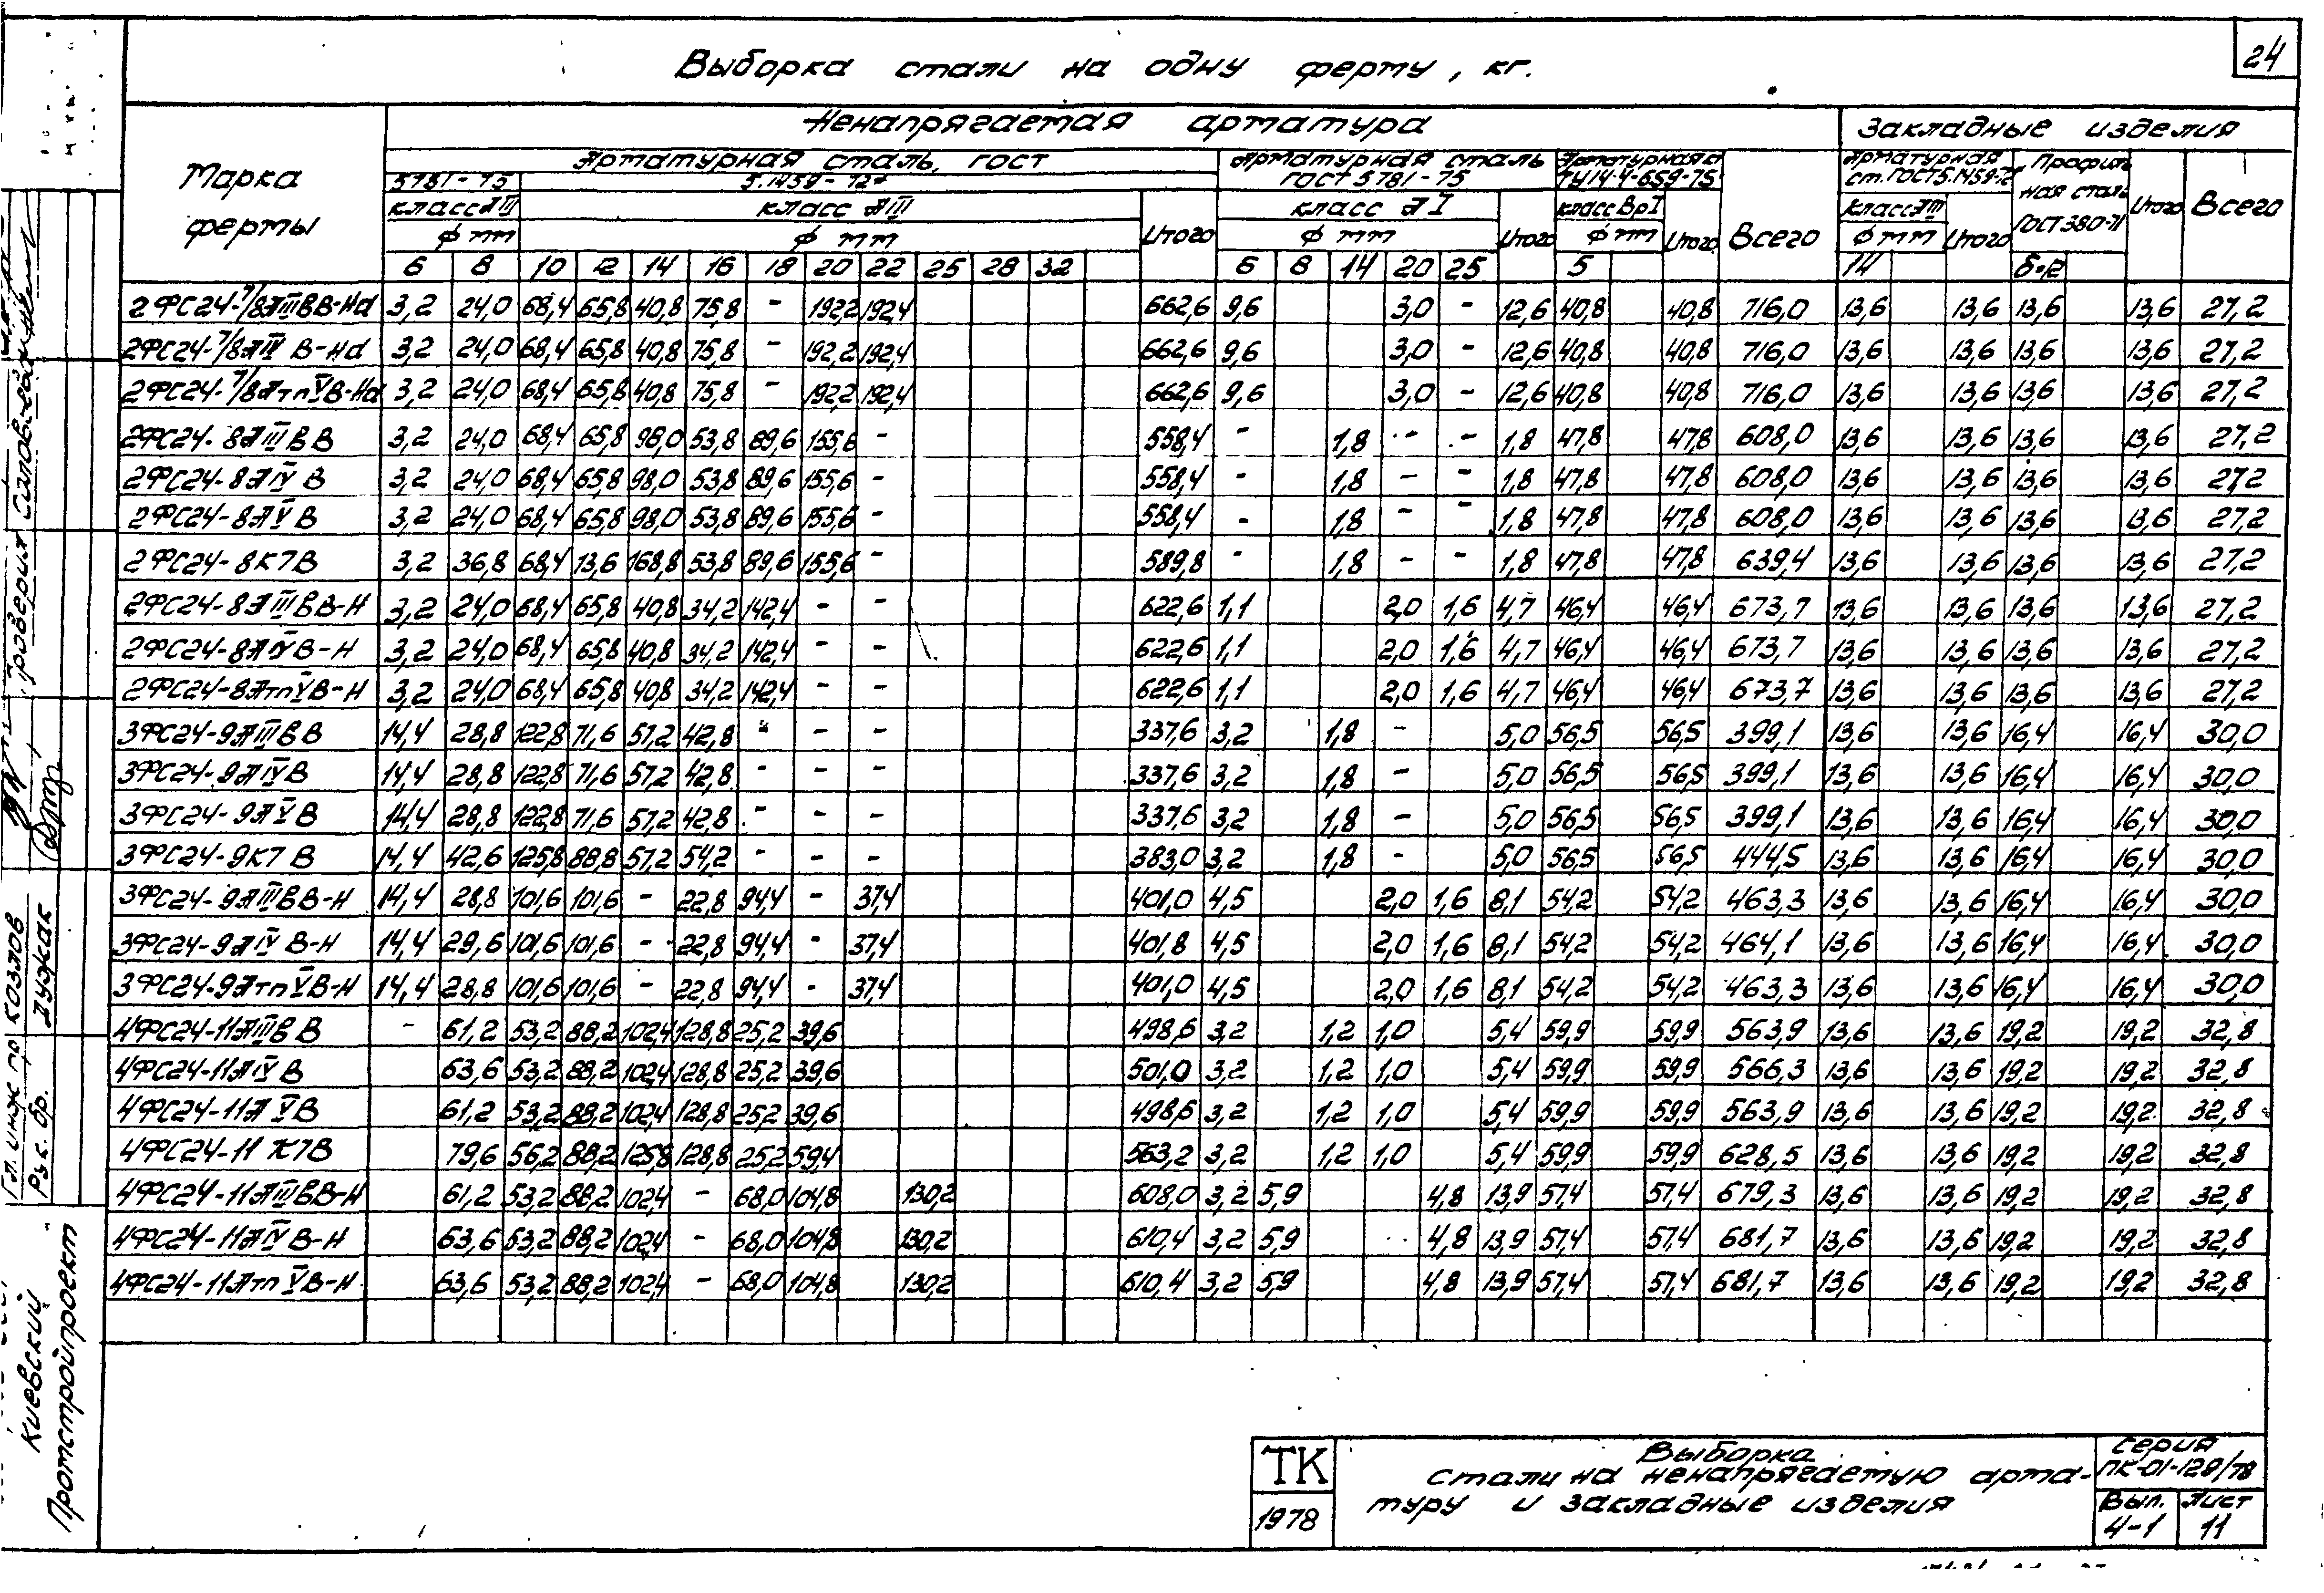 24
Выборка стали на одну ферму, кг.
Марка фермы
Ненапрягаемая арматура
Закладные изделия
Арматурная сталь, ГОСТ
Арматурная сталь ГОСТ 5781-75
Арматурная ст. ТУ14-4-659-75
Всего
Арматурная ст. ГОСТ 5.1459-72
Профильная сталь ГОСТ 380-71
Итого
Всего
5781-75
5.1459-72*
класс АIII
класс АIII
Итого
класс АI
Итого
класс ВрI
Итого
класс АIII
Итого
ф мм
ф мм
ф мм
ф мм
ф мм
6 8 10 12 14 16 18 20 22 25 28 32 6 8 14 20 25 5 14 δ=12
2ФС24-7/8АIIIвВ-На 3,2 24,0 68,4 65,8 40,8 75,8 - 192,2 192,4 662,6 9,6 3,0 - 12,6 40,8 40,8 716,0 13,6 13,6 13,6 13,6 27,2
2ФС24-7/8АIV В-На 3,2 24,0 68,4 65,8 40,8 75,8 - 192,2 192,4 662,6 9,6 3,0 - 12,6 40,8 40,8 716,0 13,6 13,6 13,6 13,6 27,2
2ФС24-7/8АтпVВ-На 3,2 24,0 68,4 65,8 40,8 75,8 - 192,2 192,4 662,6 9,6 3,0 - 12,6 40,8 40,8 716,0 13,6 13,6 13,6 13,6 27,2
2ФС24-8АIIIвВ 3,2 24,0 68,4 65,8 98,0 53,8 89,6 155,6 - 558,4 - 1,8 - - 1,8 47,8 47,8 608,0 13,6 13,6 13,6 13,6 27,2
2ФС24-8АIV В 3,2 24,0 68,4 65,8 98,0 53,8 89,6 155,6 - 558,4 - 1,8 - - 1,8 47,8 47,8 608,0 13,6 13,6 13,6 13,6 27,2
2ФС24-8АV В 3,2 24,0 68,4 65,8 98,0 53,8 89,6 155,6 - 558,4 - 1,8 - - 1,8 47,8 47,8 608,0 13,6 13,6 13,6 13,6 27,2
2ФС24-8К7В 3,2 36,8 68,4 13,6 168,8 53,8 89,6 155,6 - 589,8 - 1,8 - - 1,8 47,8 47,8 639,4 13,6 13,6 13,6 13,6 27,2
2ФС24-8АIIIвВ-Н 3,2 24,0 68,4 65,8 40,8 34,2 142,4 - - 622,6 1,1 2,0 1,6 4,7 46,4 46,4 673,7 13,6 13,6 13,6 13,6 27,2
2ФС24-8АIVВ-Н 3,2 24,0 68,4 65,8 40,8 34,2 142,4 - - 622,6 1,1 2,0 1,6 4,7 46,4 46,4 673,7 13,6 13,6 13,6 13,6 27,2
2ФС24-8АтпVВ-Н 3,2 24,0 68,4 65,8 40,8 34,2 142,4 - - 622,6 1,1 2,0 1,6 4,7 46,4 46,4 673,7 13,6 13,6 13,6 13,6 27,2
3ФС24-9АIIIвВ 14,4 28,8 122,8 71,6 57,2 42,8 - - - 337,6 3,2 1,8 - 5,0 56,5 56,5 399,1 13,6 13,6 16,4 16,4 30,0
3ФС24-9АIVВ 14,4 28,8 122,8 71,6 57,2 42,8 - - - 337,6 3,2 1,8 - 5,0 56,5 56,5 399,1 13,6 13,6 16,4 16,4 30,0
3ФС24-9АVВ 14,4 28,8 122,8 71,6 57,2 42,8 - - - 337,6 3,2 1,8 - 5,0 56,5 56,5 399,1 13,6 13,6 16,4 16,4 30,0
3ФС24-9К7В 14,4 42,6 125,8 88,8 57,2 54,2 - - - 383,0 3,2 1,8 - 5,0 56,5 56,5 444,5 13,6 13,6 16,4 16,4 30,0
3ФС24-9АIIIвВ-Н 14,4 28,8 101,6 101,6 - 22,8 94,4 - 37,4 401,0 4,5 2,0 1,6 8,1 54,2 54,2 463,3 13,6 13,6 16,4 16,4 30,0
3ФС24-9АIV В-Н 14,4 29,6 101,6 101,6 - 22,8 94,4 - 37,4 401,8 4,5 2,0 1,6 8,1 54,2 54,2 464,1 13,6 13,6 16,4 16,4 30,0
3ФС24-9АтпVВ-Н 14,4 28,8 101,6 101,6 - 22,8 94,4 - 37,4 401,0 4,5 2,0 1,6 8,1 54,2 54,2 463,3 13,6 13,6 16,4 16,4 30,0
4ФС24-11АIIIвВ - 61,2 53,2 88,2 102,4 128,8 25,2 39,6 498,6 3,2 1,2 1,0 5,4 59,9 59,9 563,9 13,6 13,6 19,2 19,2 32,8
4ФС24-11АIV В 63,6 53,2 88,2 102,4 128,8 25,2 39,6 501,0 3,2 1,2 1,0 5,4 59,9 59,9 566,3 13,6 13,6 19,2 19,2 32,8
4ФС24-11А V В 61,2 53,2 88,2 102,4 128,8 25,2 39,6 498,6 3,2 1,2 1,0 5,4 59,9 59,9 563,9 13,6 13,6 19,2 19,2 32,8
4ФС24-11 К7В 79,6 56,2 88,2 125,8 128,8 25,2 59,4 563,2 3,2 1,2 1,0 5,4 59,9 59,9 628,5 13,6 13,6 19,2 19,2 32,8
4ФС24-11АIIIвВ-Н 61,2 53,2 88,2 102,4 - 68,0 104,8 130,2 608,0 3,2 5,9 4,8 13,9 57,4 57,4 679,3 13,6 13,6 19,2 19,2 32,8
4ФС24-11АIV В-Н 63,6 53,2 88,2 102,4 - 68,0 104,8 130,2 610,4 3,2 5,9 4,8 13,9 57,4 57,4 681,7 13,6 13,6 19,2 19,2 32,8
4ФС24-11Атп VВ-Н 63,6 53,2 88,2 102,4 - 68,0 104,8 130,2 610,4 3,2 5,9 4,8 13,9 57,4 57,4 681,7 13,6 13,6 19,2 19,2 32,8
Проверил
Гл. инж. пр. Козлов
Рук. бр. Дужак
Киевский
Промстройпроект
ТК
1978
Выборка
стали на ненапрягаемую арма-
туру и закладные изделия
Серия
ПК-01-129/78
Вып. Лист
4-1 11